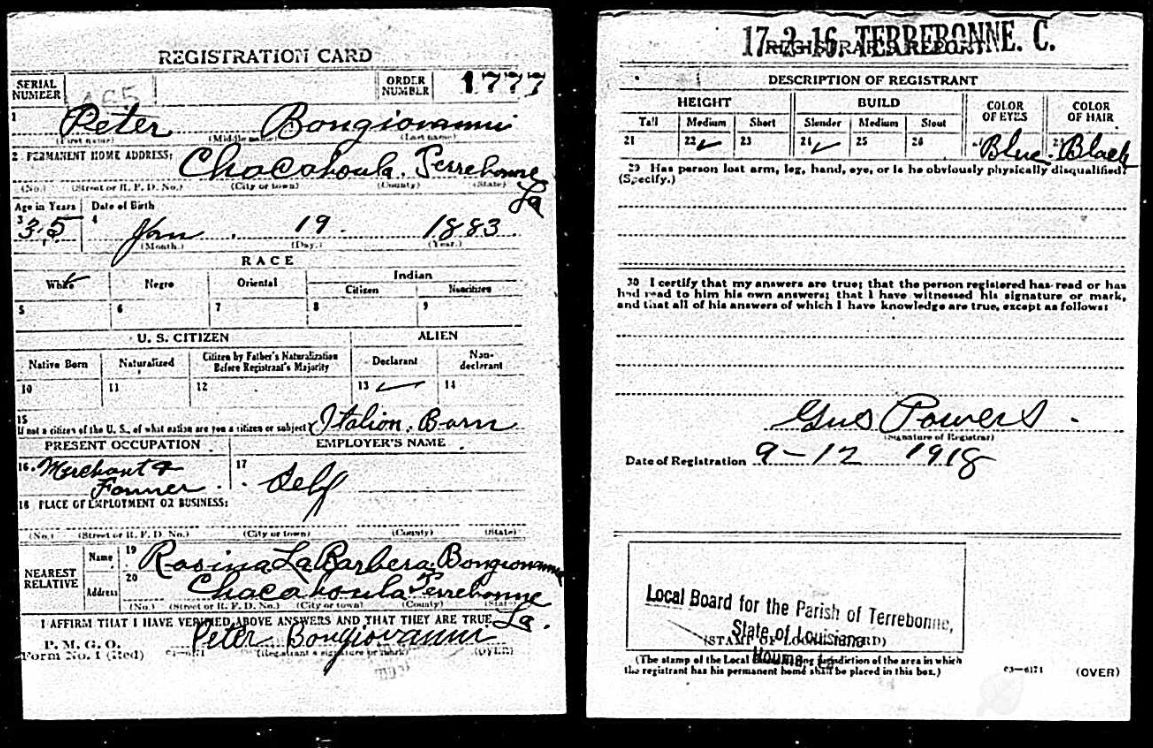 REGISTRATION CARD
SERIAL NUMBER 465 ORDER NUMBER 1777
1 Peter Bongiovanni
(First name) (Middle name) (Last name)
2 PERMANENT HOME ADDRESS: Chacahoula. Terrebonne La
(No.) (Street or R. F. D. No.) (City or town) (County) (State)
Age in Years Date of Birth
3 35 4 Jan. 19. 1883.
(Month.) (Day.) (Year.)
RACE
White Negro Oriental Indian
Citizen Noncitizen
5 6 7 8 9
U. S. CITIZEN ALIEN
Native Born Naturalized Citizen by Father's Naturalization Before Registrant's Majority Declarant Non-declarant
10 11 12 13 ✓ 14
15 If not a citizen of the U. S., of what nation are you a citizen or subject? Italion. Born
PRESENT OCCUPATION EMPLOYER'S NAME
16 Merchant & Farmer. 17 Self
18 PLACE OF EMPLOYMENT OR BUSINESS:
(No.) (Street or R. F. D. No.) (City or town) (County) (State)
NEAREST RELATIVE Name 19 Rosina LaBarbera Bongiovanni
Address 20 Chacahoula Terrebonne La.
(No.) (Street or R. F. D. No.) (City or town) (County) (State)
I AFFIRM THAT I HAVE VERIFIED ABOVE ANSWERS AND THAT THEY ARE TRUE
P. M. G. O.
Form No. 1 (Red) Peter Bongiovanni
(Registrant's signature or mark) (OVER)
17-2-16 TERREBONNE. C.
REGISTRAR'S REPORT
DESCRIPTION OF REGISTRANT
HEIGHT BUILD COLOR OF EYES COLOR OF HAIR
Tall Medium Short Slender Medium Stout
21 22 ✓ 23 24 ✓ 25 26 27 Blue 28 Black
29 Has person lost arm, leg, hand, eye, or is he obviously physically disqualified?
(Specify.)
30 I certify that my answers are true; that the person registered has read or has
had read to him his own answers; that I have witnessed his signature or mark,
and that all of his answers of which I have knowledge are true, except as follows:
Gus Powers.
(Signature of Registrar)
Date of Registration 9-12 1918
Local Board for the Parish of Terrebonne,
State of Louisiana
Houma, La.
(STAMP OF LOCAL BOARD)
(The stamp of the Local Board having jurisdiction of the area in which
the registrant has his permanent home shall be placed in this box.)
03—6171 (OVER)